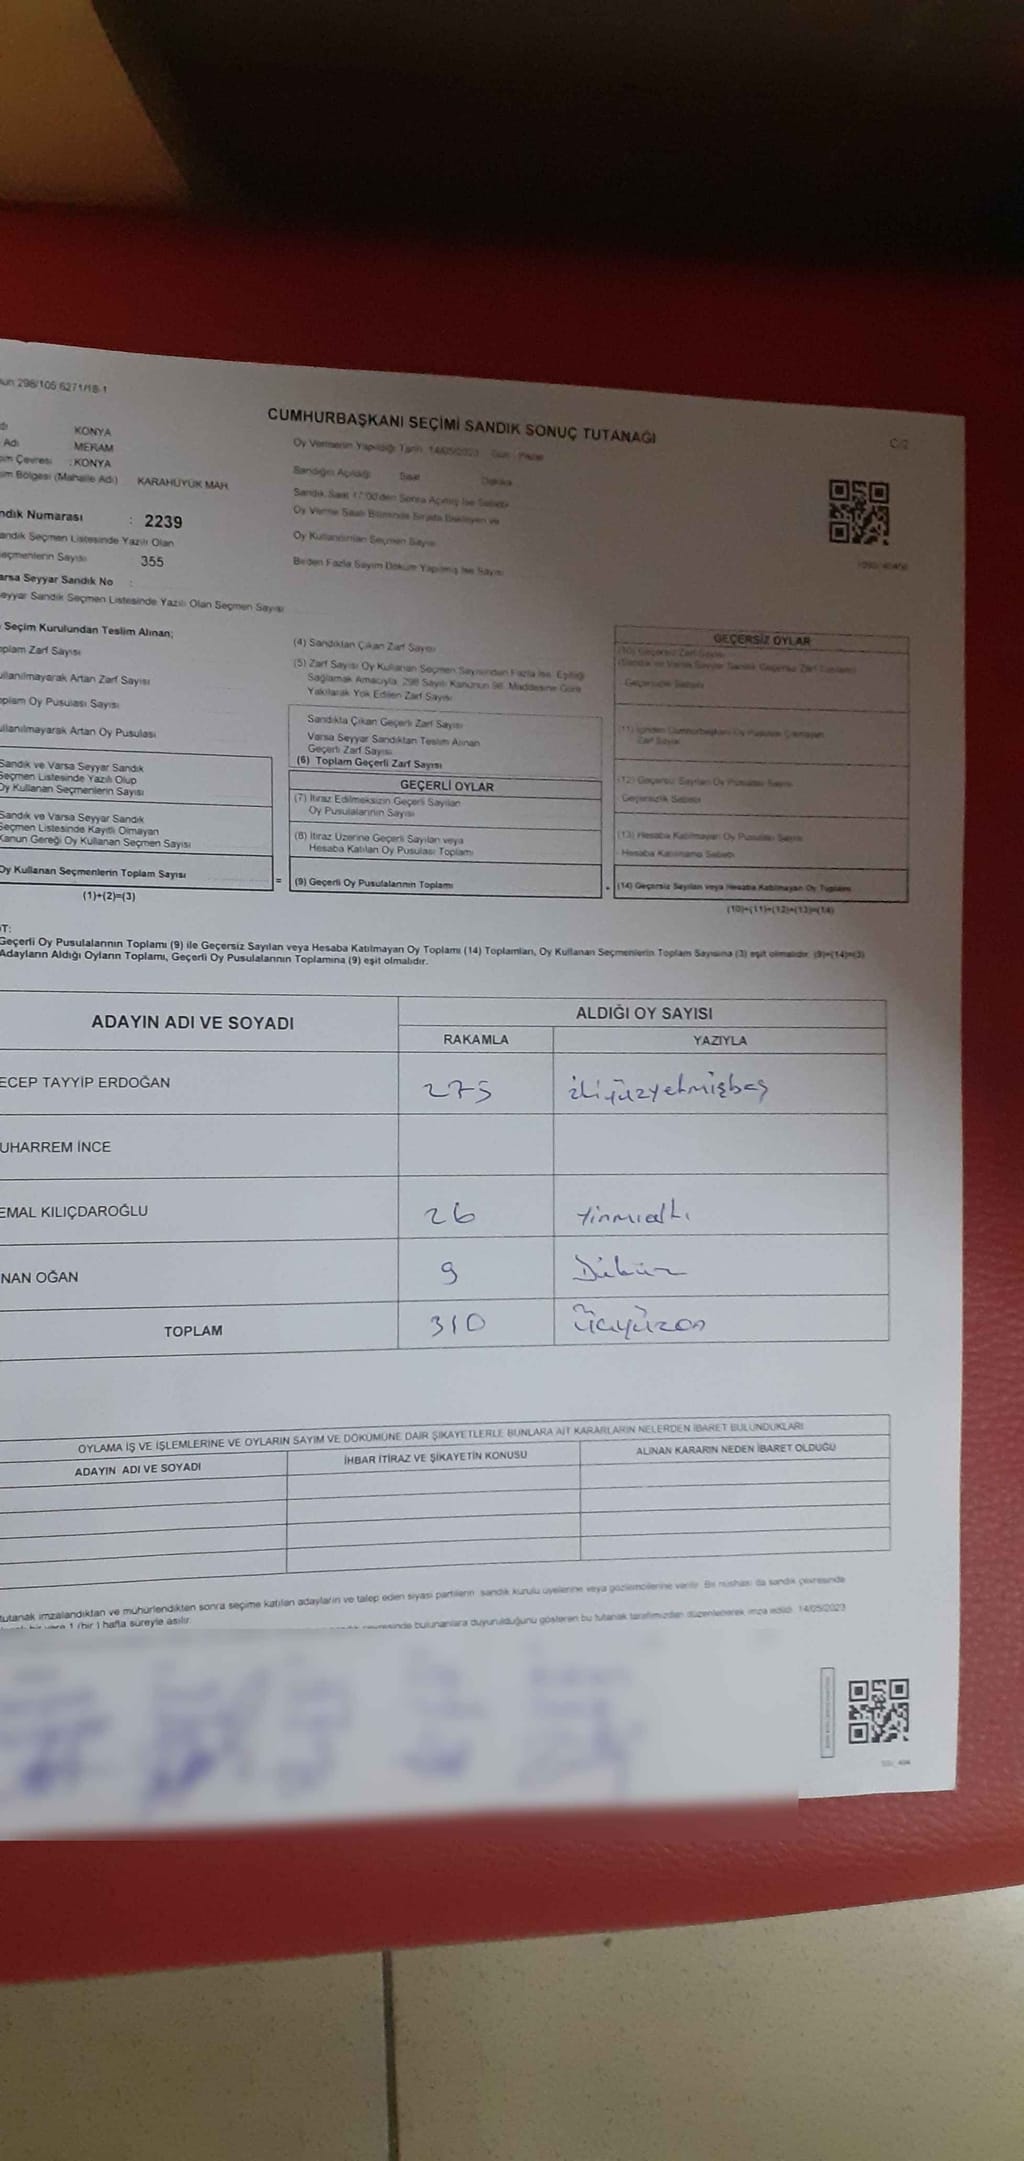 298/105 6271/18-1
CUMHURBAŞKANI SEÇİMİ SANDIK SONUÇ TUTANAĞI
C/2
KONYA
Adı MERAM
Çevresi : KONYA
Bölgesi (Mahalle Adı) KARAHÜYÜK MAH.
Numarası : 2239
Sandık Seçmen Listesinde Yazılı Olan
Seçmenlerin Sayısı 355
Varsa Seyyar Sandık No :
Seyyar Sandık Seçmen Listesinde Yazılı Olan Seçmen Sayısı
Oy Vermenin Yapıldığı Tarih 14/05/2023 Gün : Pazar
Sandığın Açıldığı Saat Dakika
Sandık Saat 17:00'den Sonra Açılmış İse Sebebi
Oy Verme Saati Bitiminde Sırada Bekleyen ve
Oy Kullandırılan Seçmen Sayısı
Birden Fazla Sayım Döküm Yapılmış İse Sayısı
Seçim Kurulundan Teslim Alınan;
Zarf Sayısı
Artan Zarf Sayısı
Oy Pusulası Sayısı
Artan Oy Pusulası
Sandık ve Varsa Seyyar Sandık
Seçmen Listesinde Yazılı Olup
Oy Kullanan Seçmenlerin Sayısı
Sandık ve Varsa Seyyar Sandık
Seçmen Listesinde Kayıtlı Olmayan
Kanun Gereği Oy Kullanan Seçmen Sayısı
Oy Kullanan Seçmenlerin Toplam Sayısı
(1)+(2)=(3)
(4) Sandıktan Çıkan Zarf Sayısı
(5) Zarf Sayısı Oy Kullanan Seçmen Sayısından Fazla İse, Eşitliği
Sağlamak Amacıyla, 298 Sayılı Kanunun 98. Maddesine Göre
Yakılarak Yok Edilen Zarf Sayısı
Sandıkta Çıkan Geçerli Zarf Sayısı
Varsa Seyyar Sandıktan Teslim Alınan
Geçerli Zarf Sayısı
(6) Toplam Geçerli Zarf Sayısı
GEÇERLİ OYLAR
(7) İtiraz Edilmeksizin Geçerli Sayılan
Oy Pusulalarının Sayısı
(8) İtiraz Üzerine Geçerli Sayılan veya
Hesaba Katılan Oy Pusulası Toplamı
= (9) Geçerli Oy Pusulalarının Toplamı
GEÇERSİZ OYLAR
(10) Geçersiz Zarf Sayısı
Geçersizlik Sebebi
(11) İçinden Cumhurbaşkanı Oy Pusulası Çıkmayan
Zarf Sayısı
(12) Geçersiz Sayılan Oy Pusulası Sayısı
Geçersizlik Sebebi
(13) Hesaba Katılmayan Oy Pusulası Sayısı
Hesaba Katılmama Sebebi
(14) Geçersiz Sayılan veya Hesaba Katılmayan Oy Toplamı
(10)+(11)+(12)+(13)=(14)
Geçerli Oy Pusulalarının Toplamı (9) ile Geçersiz Sayılan veya Hesaba Katılmayan Oy Toplamı (14) Toplamları, Oy Kullanan Seçmenlerin Toplam Sayısına (3) eşit olmalıdır. (9)+(14)=(3)
Adayların Aldığı Oyların Toplamı, Geçerli Oy Pusulalarının Toplamına (9) eşit olmalıdır.
ADAYIN ADI VE SOYADI ALDIĞI OY SAYISI
RAKAMLA YAZIYLA
ECEP TAYYİP ERDOĞAN 275 ikiyüzyetmişbeş
UHARREM İNCE
EMAL KILIÇDAROĞLU 26 Yirmialtı
NAN OĞAN 9 Dokuz
TOPLAM 310 Üçyüzon
OYLAMA İŞ VE İŞLEMLERİNE VE OYLARIN SAYIM VE DÖKÜMÜNE DAİR ŞİKAYETLERLE BUNLARA AİT KARARLARIN NELERDEN İBARET BULUNDUKLARI
ADAYIN ADI VE SOYADI İHBAR İTİRAZ VE ŞİKAYETİN KONUSU ALINAN KARARIN NEDEN İBARET OLDUĞU
tutanak imzalandıktan ve mühürlendikten sonra seçime katılan adayların ve talep eden siyasi partilerin sandık kurulu üyelerine veya gözlemcilerine verilir. Bir nüshası da sandık çevresinde
1 (bir ) hafta süreyle asılır.
bulunanlara duyurulduğunu gösteren bu tutanak tarafımızdan düzenlenerek imza edildi. 14/05/2023